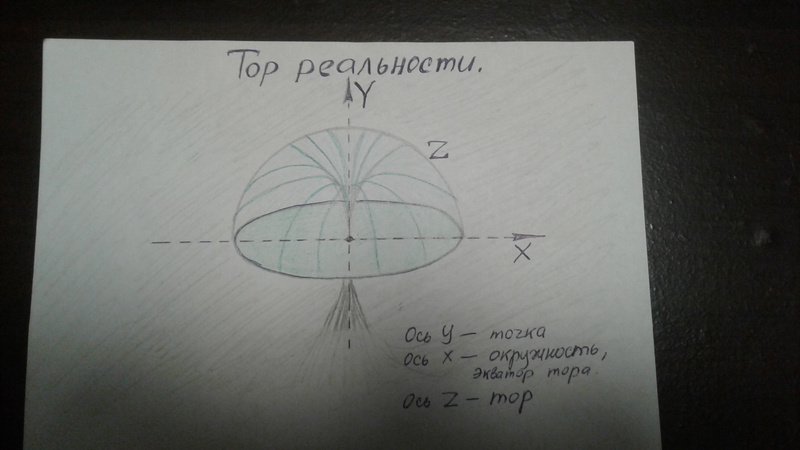 Тор реальности.
Y
Z
X
Ось Y — точка
Ось X — окружность,
экватор тора.
Ось Z — тор